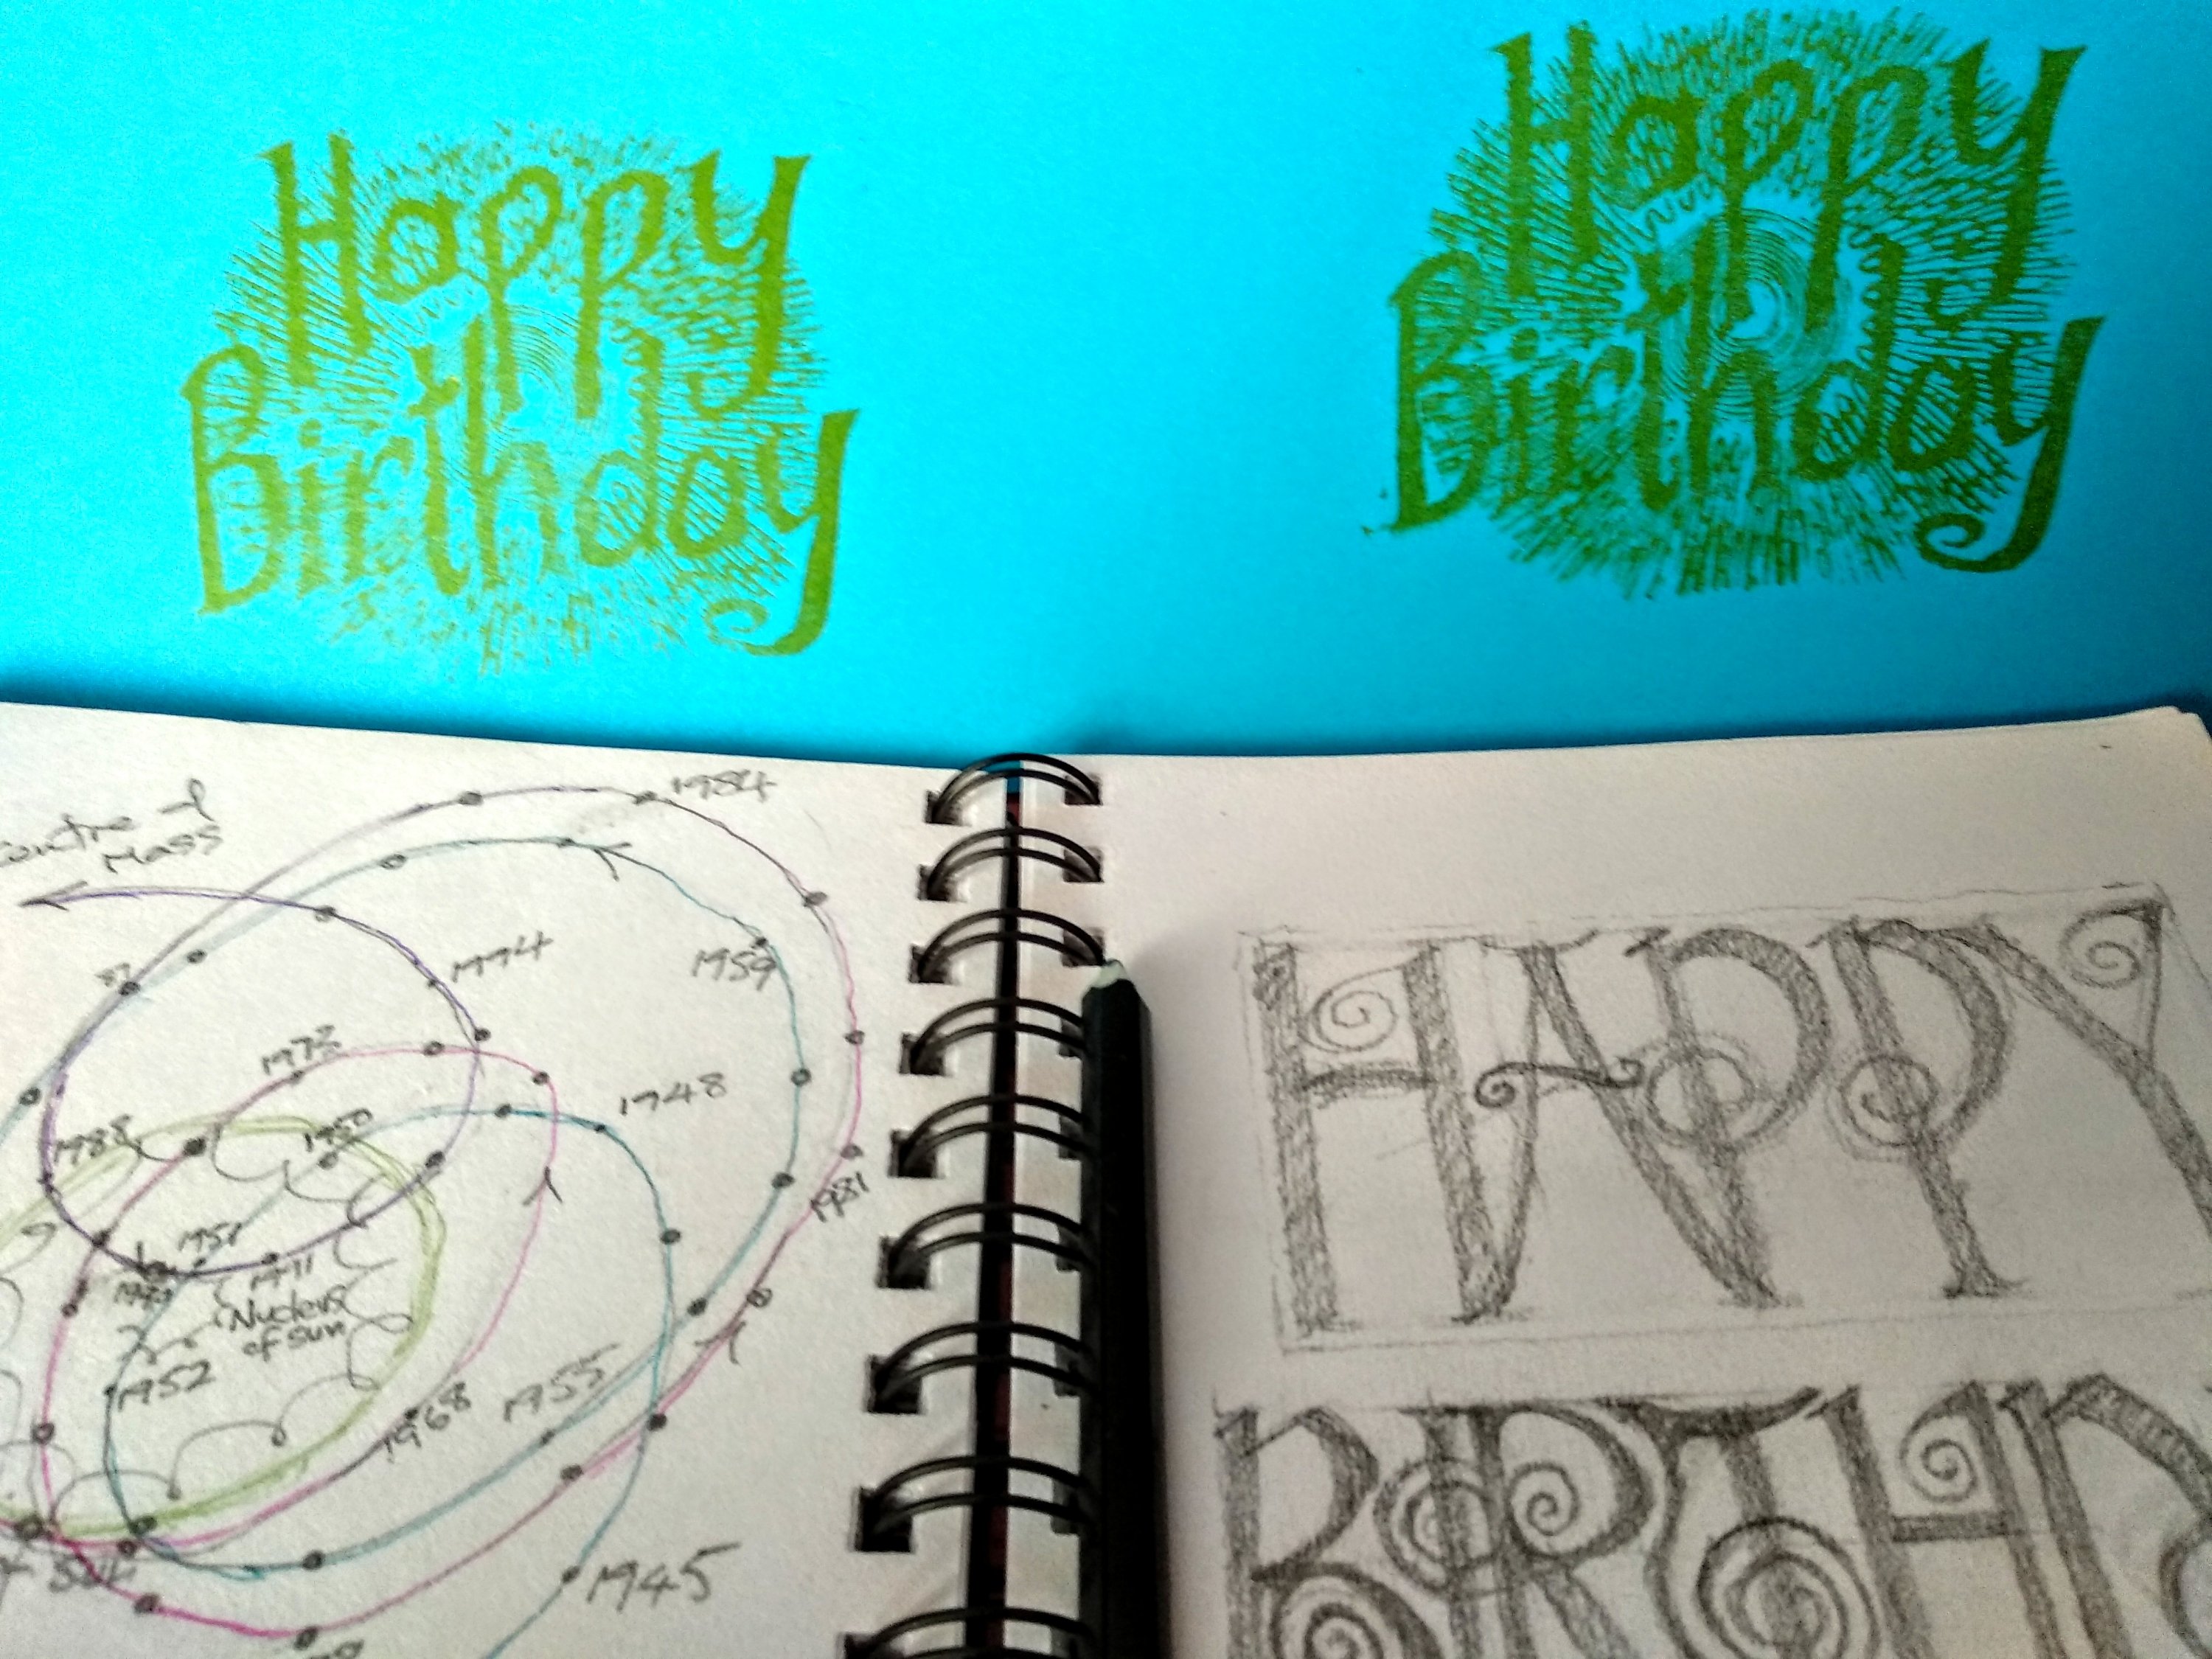 Happy
Birthday
Happy
Birthday
Centre of
Mass
1984
1994
1959
1973
1948
1950
1981
1951
1971
Nucleus
of sun
1952
1955
1968
1945
HAPPY
BIRTHD